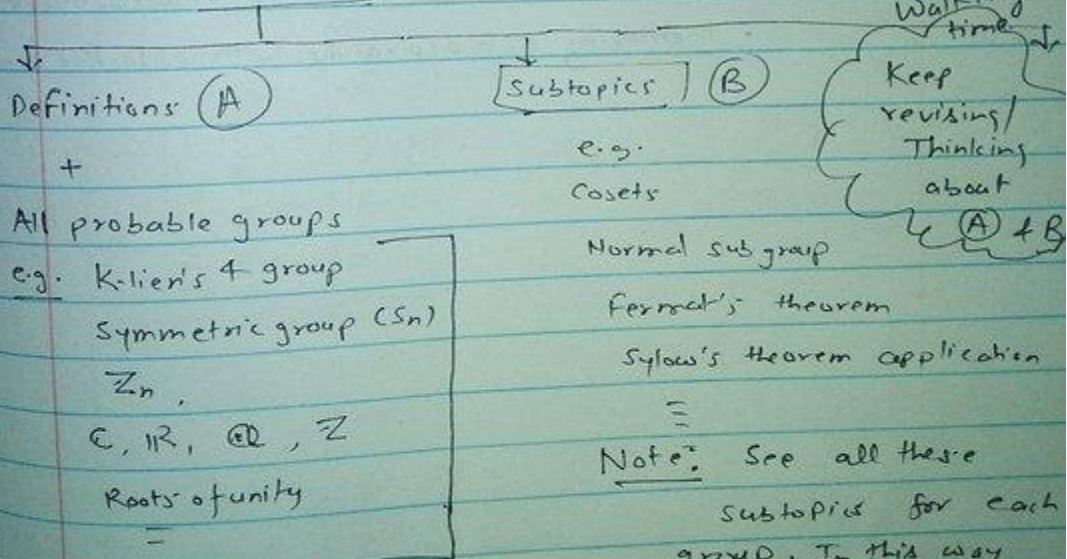 Definitions (A)
+
All probable groups
e.g. K-lien's 4 group
Symmetric group (Sn)
Zn,
C, IR, Q, Z
Roots of unity
=
Subtopics (B)
e.g.
Cosets
Normal subgroup
Fermat's theorem
Sylow's theorem application
Note: See all these
subtopics for each
group. In this way
time
Keep
revising/
Thinking
about
(A) & B